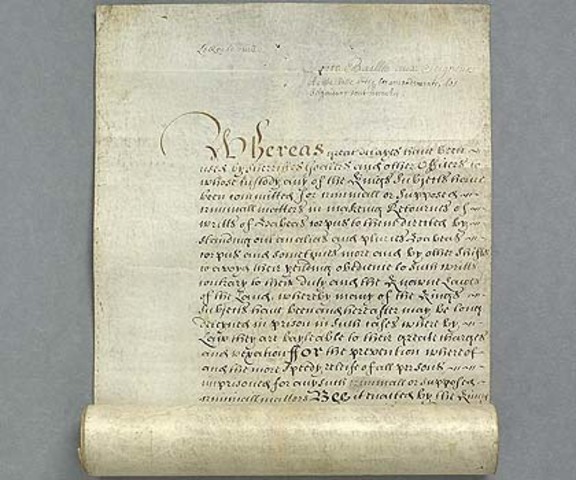 Le Roy le veult
Soit Baille aux Seigneurs
A cette Bille avec les amendments, les
Seigneurs sont
Whereas great delayes have been
used by Sherriffes Goalers and other Officers to
whose custody any of the Kings Subjects have
been committed for criminall or Supposed
criminall matters in makeing Retournes of
writts of Habeas corpus to them directed by
standing out an alias and pluries Habeas
corpus and sometimes more and by other shifts
to avoyd their yeilding obedience to such writts
contrary to their duty and the Knowne Lawes
of the Land, whereby many of the Kings
Subjects have been and hereafter may be long
detained in prison in such cases where by
Law they are bayleable to their great charges
and vexation ffor the prevention whereof
and the more speedy releife of all persons
imprisoned for any such criminall or supposed
criminall matters Bee it enacted by the Kings